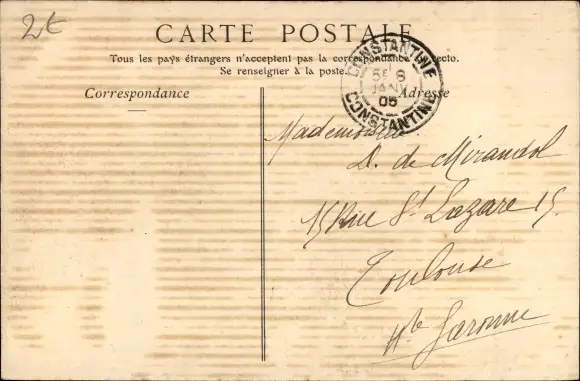 2€
CARTE POSTALE
Tous les pays étrangers n'acceptent pas la correspondance au recto.
Se renseigner à la poste.
CONSTANTINE
5E 8
JANV
05
CONSTANTINE
Correspondance
Adresse
Mademoiselle
A. de Mirandol
15 Rue St Lazare 15
Toulouse
Hte Garonne